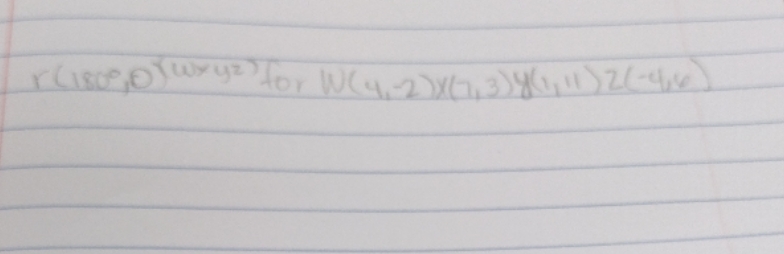 r(180°,0)(wxyz) for W(4,-2)X(7,3)y(1,11)Z(-4,6)